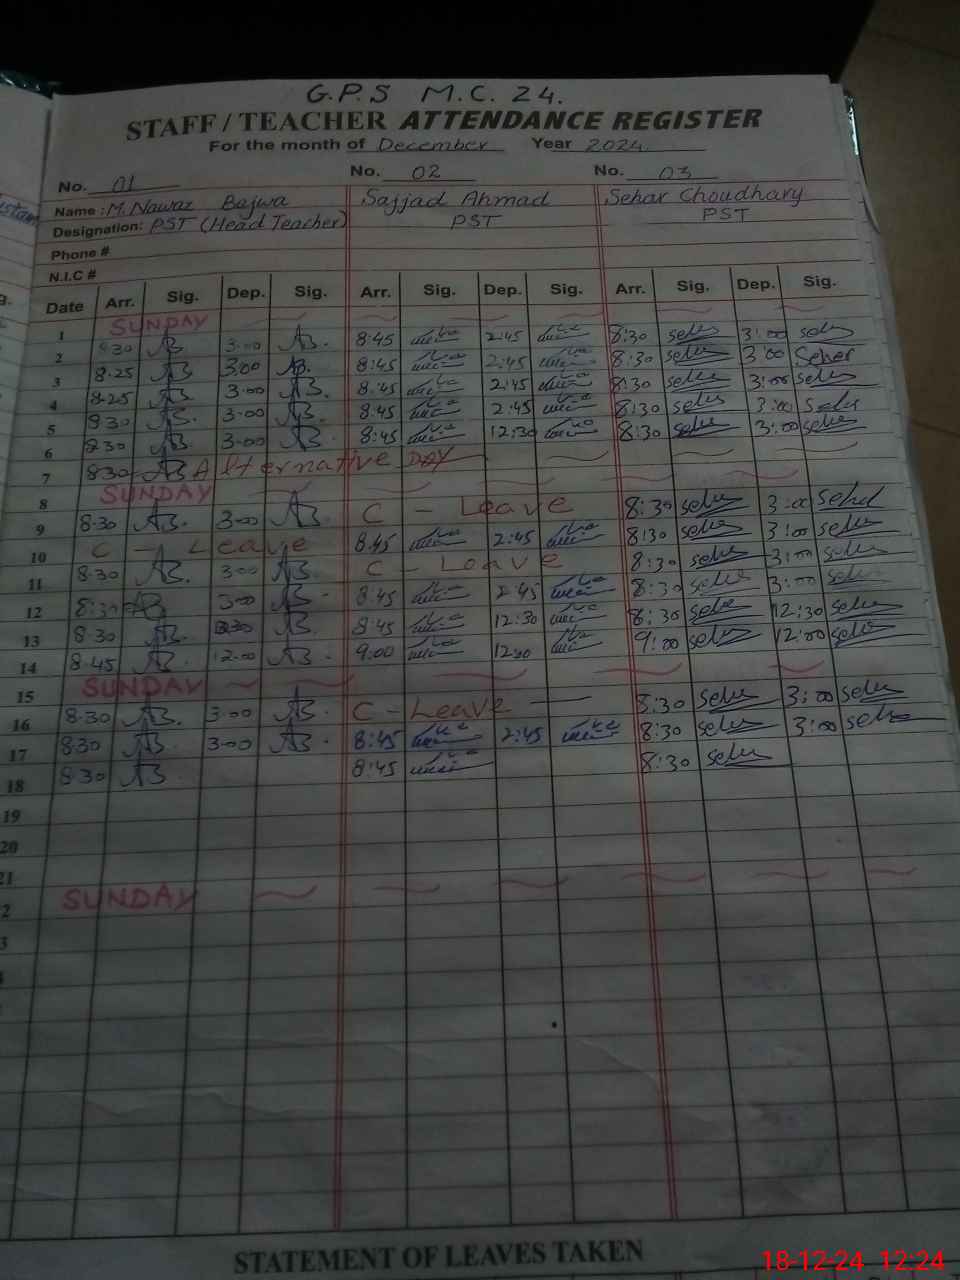 G.P.S M.C. 24.
STAFF / TEACHER ATTENDANCE REGISTER
For the month of December Year 2024
No. 01 No. 02 No. 03
Name : M. Nawaz Bajwa Sajjad Ahmad Sehar Choudhary
Designation: PST (Head Teacher) PST PST
Phone #
N.I.C #
Date Arr. Sig. Dep. Sig. Arr. Sig. Dep. Sig. Arr. Sig. Dep. Sig.
1 SUNDAY
2 8:30 AB 3:00 AB. 8:45 2:45 8:30 seher 3:00 seher
3 8.25 AB 3:00 AB. 8:45 2:45 8:30 seher 3:00 Seher
4 8.25 AB 3:00 AB. 8:45 2:45 8:30 seher 3:00 seher
5 8.30 AB. 3:00 AB. 8:45 2:45 8:30 seher 3:00 seher
6 8.30 AB 3:00 AB. 8:45 12:30 8:30 seher 3:00 seher
7 8.30 AB Alternative DAY
8 SUNDAY
9 8.30 AB. 3:00 AB. C - Leave 8:30 seher 3:00 sehel
10 C - Leave 8:45 2:45 8:30 seher 3:00 seher
11 8.30 AB. 3:00 AB. C - Leave 8:30 seher 3:00 seher
12 8:30 AB 3:00 AB. 8:45 2:45 8:30 seher 3:00 seher
13 8.30 AB. AB. 8:45 12:30 8:30 seher 12:30 seher
14 8.45 AB. 12.00 AB. 9:00 12:00 9:00 seher 12:00 seher
15 SUNDAY
16 8.30 AB. 3:00 AB. C - Leave 8:30 seher 3:00 seher
17 8.30 AB. 3:00 AB. 8:45 2:45 8:30 seher 3:00 seher
18 8.30 AB 8:45 8:30 seher
19
20
21
2 SUNDAY
3
STATEMENT OF LEAVES TAKEN
18-12-24 12:24